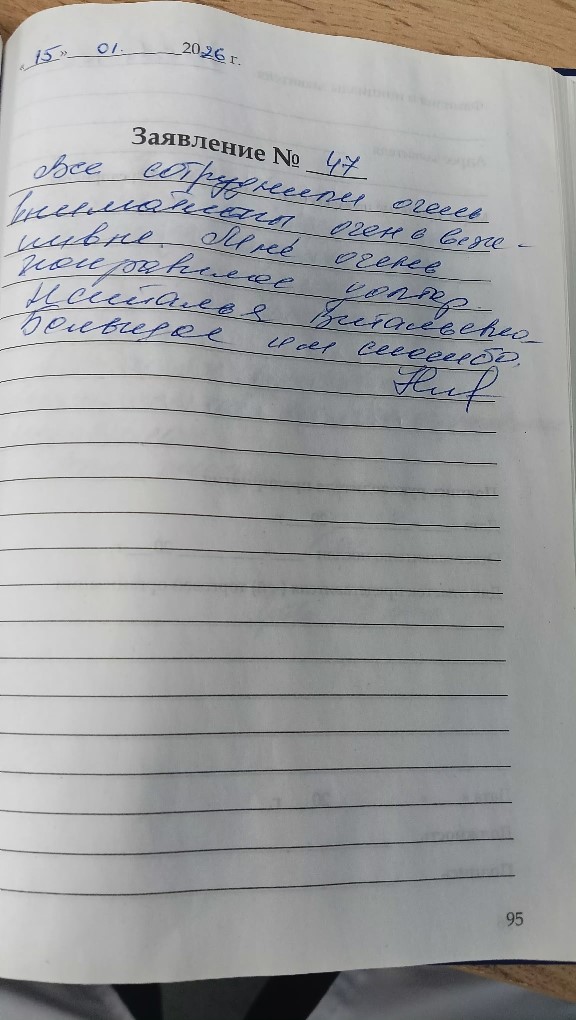 «15» 01. 2026 г.
Заявление № 47
Все сотрудники очень
внимательны очень веж-
ливые. Мне очень
понравилось
Наталья Витальевна
Большое им спасибо.
95